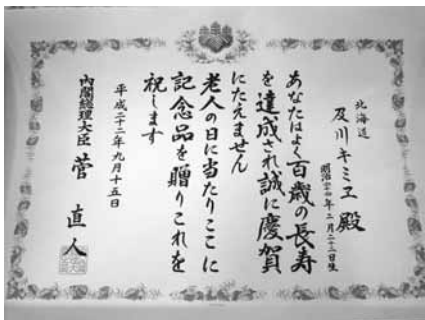 北海道
及川キミヱ殿
明治四十四年二月二十三日生
あなたはよく百歳の長寿
を達成され誠に慶賀
にたえません
老人の日に当たりここに
記念品を贈りこれを
祝します
平成二十二年九月十五日
内閣総理大臣 菅直人